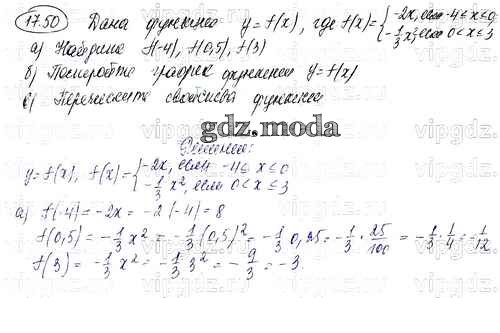 17.50 Дана функция y=f(x), где f(x)={-2x, если -4≤x≤0
-1/3 x², если 0<x≤3
а) Найдите f(-4), f(0,5), f(3)
б) Постройте график функции y=f(x)
в) Перечислите свойства функции
gdz.moda
Решение:
y=f(x), f(x)={-2x, если -4≤x≤0
-1/3 x², если 0<x≤3
а) f(-4)=-2x=-2(-4)=8
f(0,5)=-1/3 x²=-1/3(0,5)²=-1/3 0,25=-1/3·25/100=-1/3·1/4=-1/12
f(3)=-1/3 x²=-1/3 3²=-9/3=-3